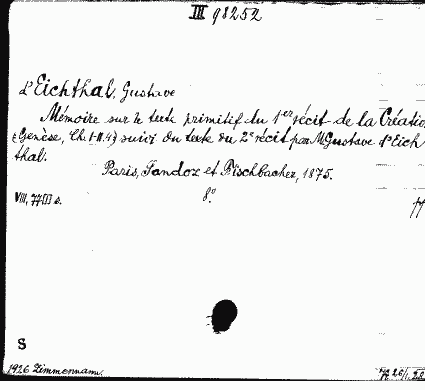 III 98252
d'Eichthal, Gustave
Mémoire sur le texte primitif du 1er récit de la Création
(Genèse, Ch. I-II.4) suivi du texte du 2e récit par M. Gustave d'Eich
thal.
Paris, Sandoz et Fischbacher, 1875.
VIII, 77 [I] s. 8°
S
1926 Zimmermann.